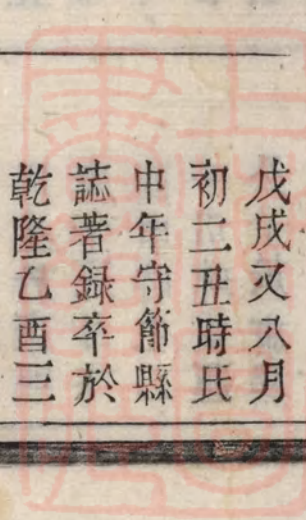 戊戌又八月
初二丑時氏
中年守節縣
誌著録卒於
乾隆乙酉三